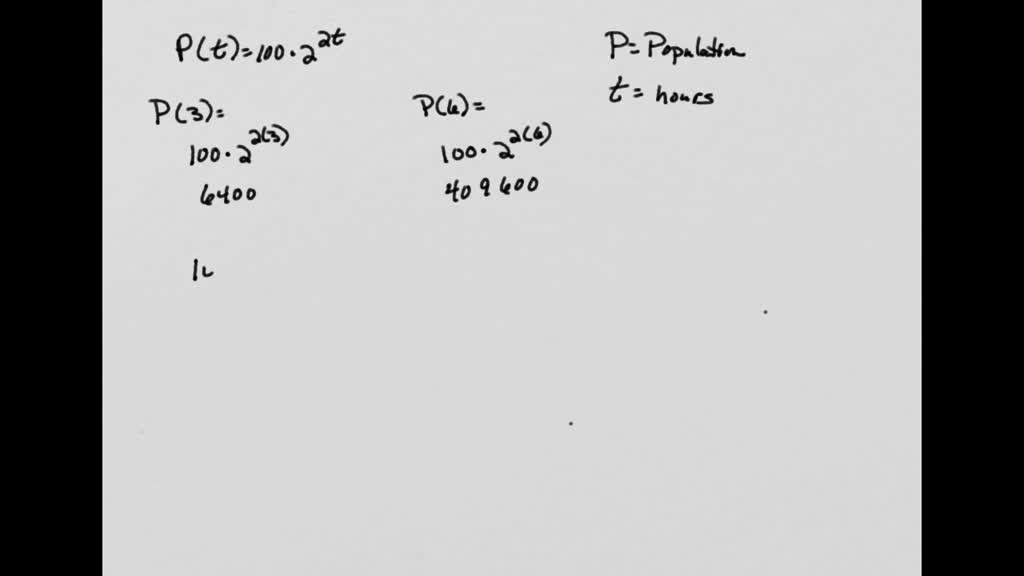 P(t)=100·2^2t
P=Population
t= hours
P(3)=
100·2^2(3)
6400
P(6)=
100·2^2(6)
409600